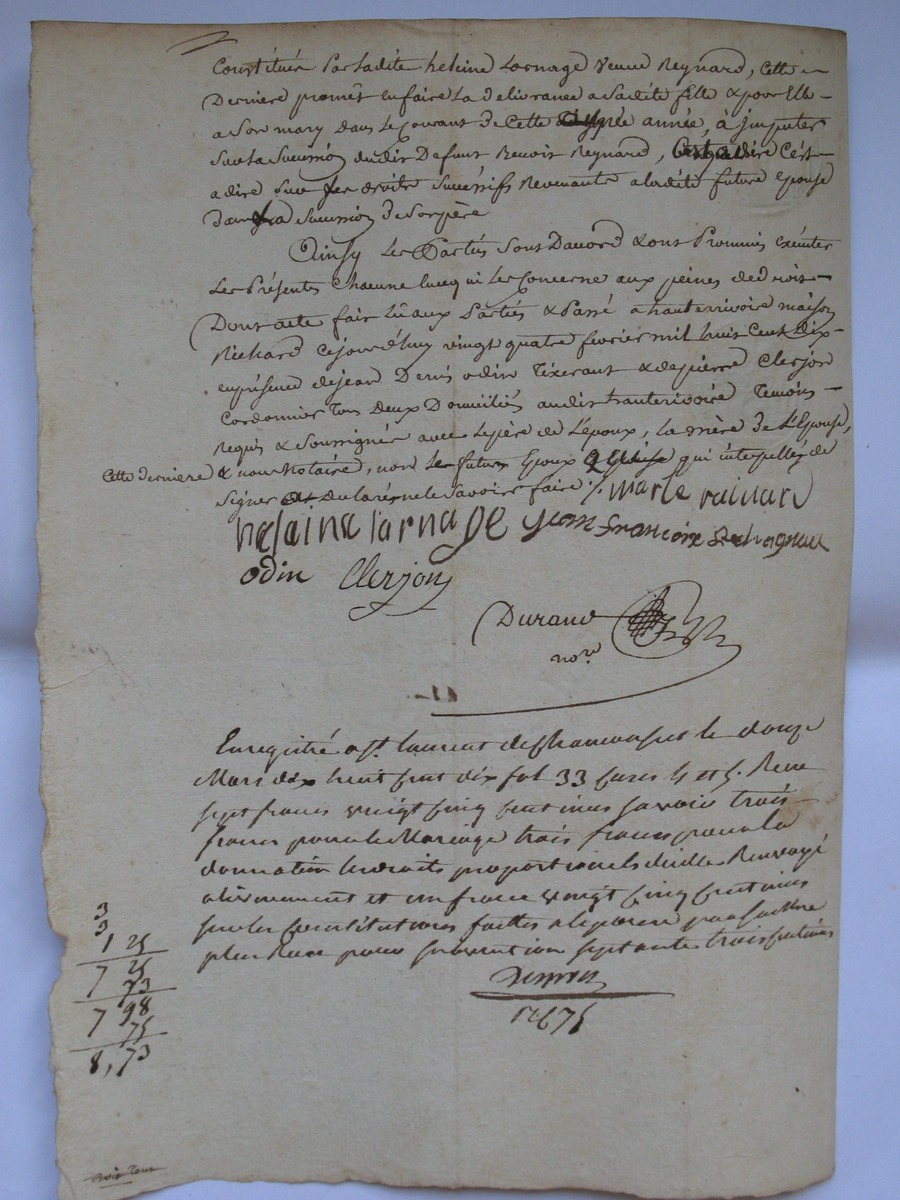 Constitués Par Ladite heleine Larnage Veuve Reynard, Cette
Derniere promet En faire La delivrance a Sadite fille & pour Elle
a Son mary dans Le Courant de Cette année, à Jmputer
Sur La Succession dudit Defunt Benoit Reynard, C'est
adire Sur Les droits Successifs Revenants a laditte future Epouse
dans La Succession de Son père
Ainsy Les Parties Sont Daccord & ont Promis Exécuter
Les Présentes Chacune En ce qui Les Concerne aux peines de droit
Dont acte fait Lû aux Parties & Passé a hauterivoire maison
Richard Cejourd'huy vingt quatre fevrier mil huit Cent dix
en présence de jean Denis odin Tixerant & de pierre Clerjon
Cordonnier Tous Deux Domiciliés audit hauterivoire Temoins
Requis & Soussignés avec Le père de L'époux, La mère de L'Epouse,
Cette derniere & nous Notaire, non Les futurs Epoux qui interpellés de
Signer ont déclarés ne le Savoir faire ./. marie rainard
helaine larnage jean francoix
odin Clerjon
Durand
nore
Enregistré a st. laurent de Chamousset le douze
Mars dix huit cent dix fol 33 Cases 4 et 5. Recu
sept francs vingt cinq centimes savoir trois
francs pour le Mariage trois francs pour la
donnation les droits proportionels d'icelle Renvoyé
a l'évenement et un franc vingt cinq centimes
sur les Constitutions faittes a l'épouse par sa Mere
plus Recu pour subvention septante trois centimes
3
3
1 25
7 25
73
7 98
75
8,73